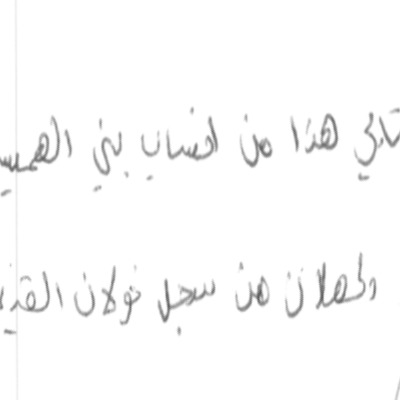 هذا من انساب بني الهميس
وكهلان من سجل خولان القديم